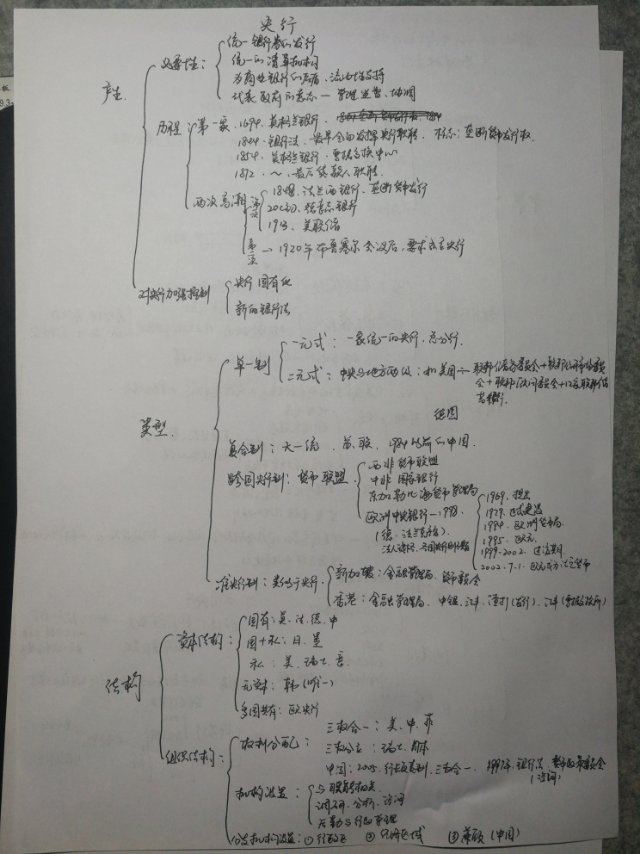 央行
产生
必要性：
统一银行券的发行
统一的清算机构
为商业银行的后盾、流动性支持
代表政府的意志—管理、监督、协调
历程：
第一家，1694，英格兰银行，
1844，银行法，最早全面发挥央行职能，标志：垄断货币发行权
1854，英格兰银行，票据交换中心
1872，～，最后贷款人职能
两次高潮
第一次
1848，法兰西银行，垄断货币发行
20C初，瑞典银行
1913，美联储
第二次 — 1920年布鲁塞尔会议后，要求成立央行
对央行加强控制
央行国有化
新的银行法
类型
单一制
一元式：一家统一的央行，总分行
二元式：中央与地方两级：如美国
德国
复合制：大一统，苏联，1984以前的中国
跨国央行制：货币联盟
西非货币联盟
中非国家银行
东加勒比海货币管理局
欧洲中央银行—1998
1969，提出
1979，
1994，欧洲货币局
1995，欧元
1999-2002，过渡期
2002.7.1，欧元成为法定货币
准央行制：类似于央行
新加坡：金融管理局、货币委会
香港：金融管理局、中银、汇丰、渣打（发行）、汇丰（票据交换所）
结构
资本结构：
国有：英、法、德、中
国+私：日、墨
私：美、瑞士、意
无资本：韩（唯一）
多国共有：欧央行
组织结构：
权利分配：
三权合一：美、中、菲
三权分立：瑞士、日本
机构设置：
调研、分析、咨询
后勤与行政管理
分支机构设置：①行政区 ②经济区域 ③兼顾（中国）